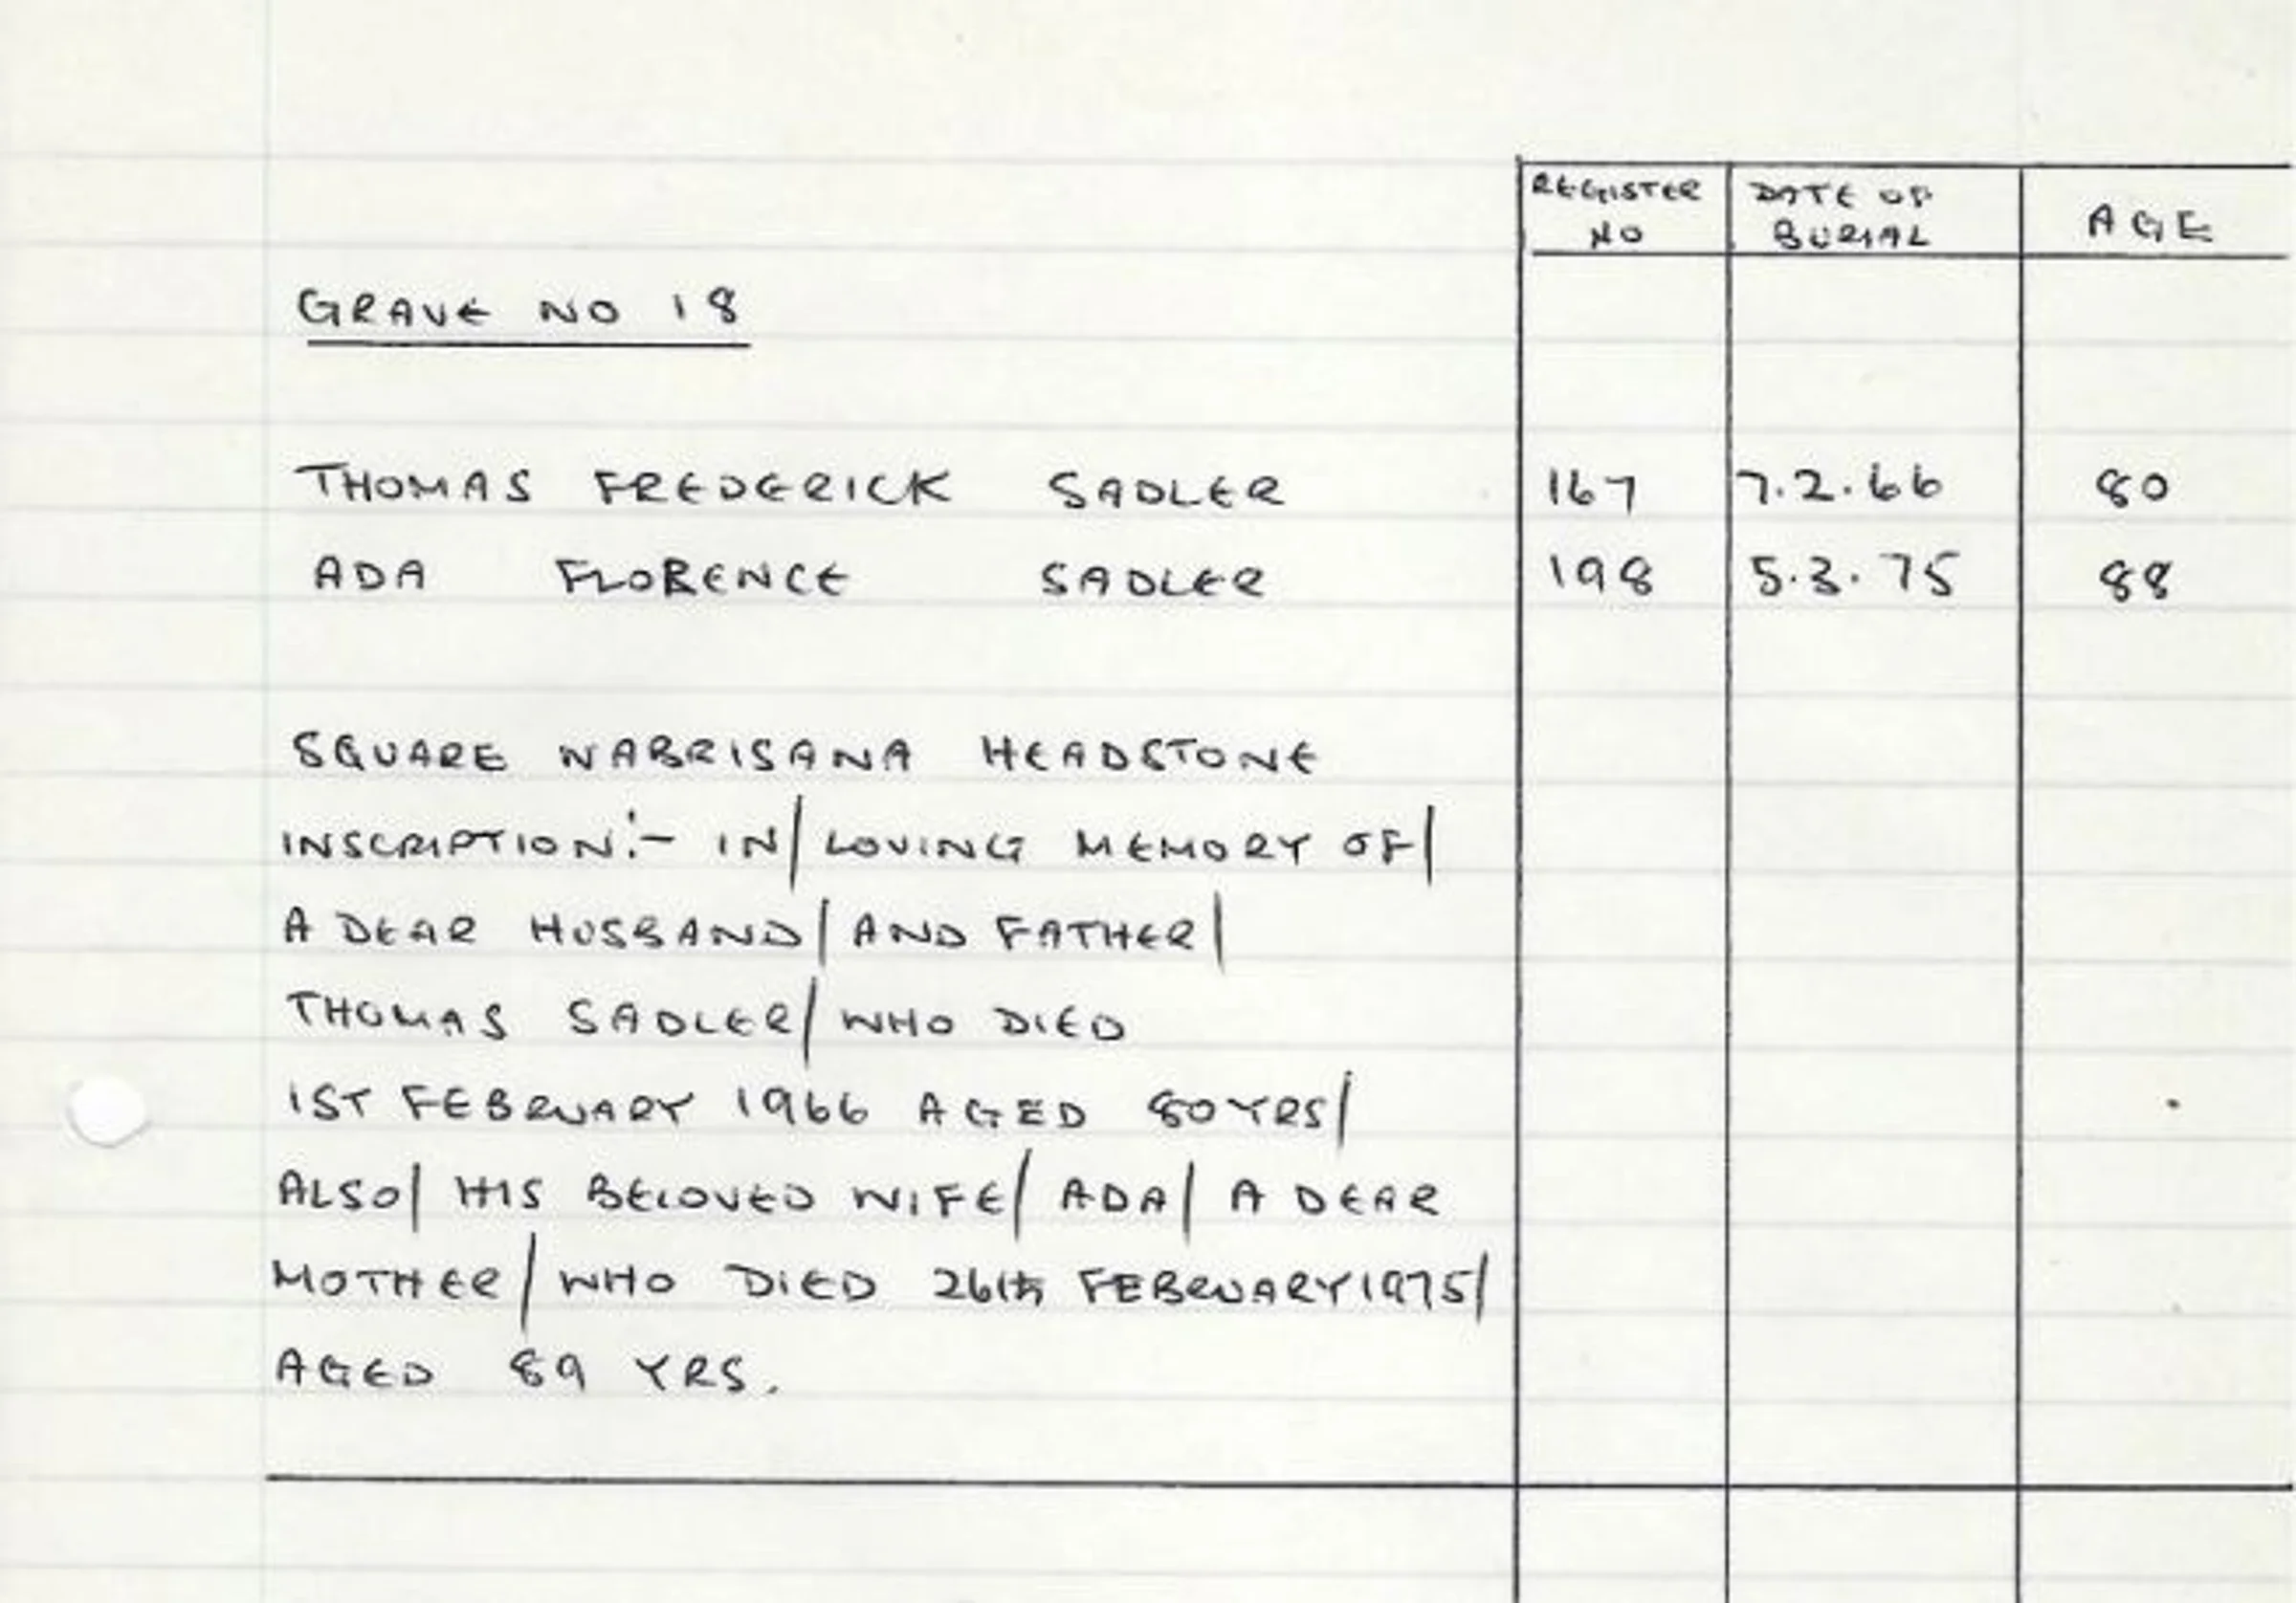 REGISTER NO DATE OF BURIAL AGE
GRAVE NO 18
THOMAS FREDERICK SADLER 167 7.2.66 80
ADA FLORENCE SADLER 198 5.3.75 88
SQUARE NABRISANA HEADSTONE
INSCRIPTION:- IN/ LOVING MEMORY OF/
A DEAR HUSBAND/ AND FATHER/
THOMAS SADLER/ WHO DIED
1ST FEBRUARY 1966 AGED 80YRS/
ALSO/ HIS BELOVED WIFE/ ADA/ A DEAR
MOTHER/ WHO DIED 26th FEBRUARY 1975/
AGED 89 YRS.